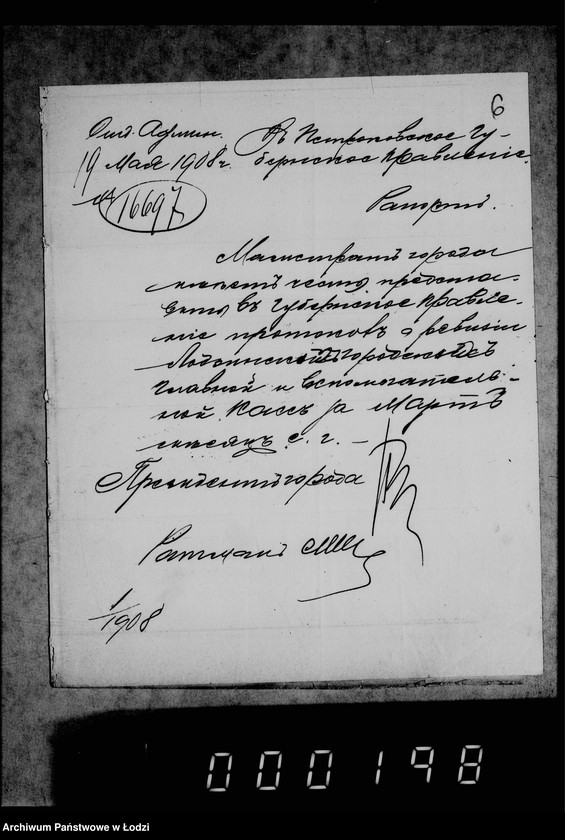 6
Отд. Админ.
19 Мая 1908 г.
№ 16697
Въ Петроковское Гу-
бернское Правленіе.
Рапортъ.
Магистратъ города
имѣетъ честь предста-
вить въ Губернское Правле-
ніе протоколъ о ревизіи
Лодзинской городской
главной и вспомогатель-
ной кассъ за Мартъ
мѣсяцъ с. г. —
Президентъ города
Ратманъ
1/1908
000198
Archiwum Państwowe w Łodzi